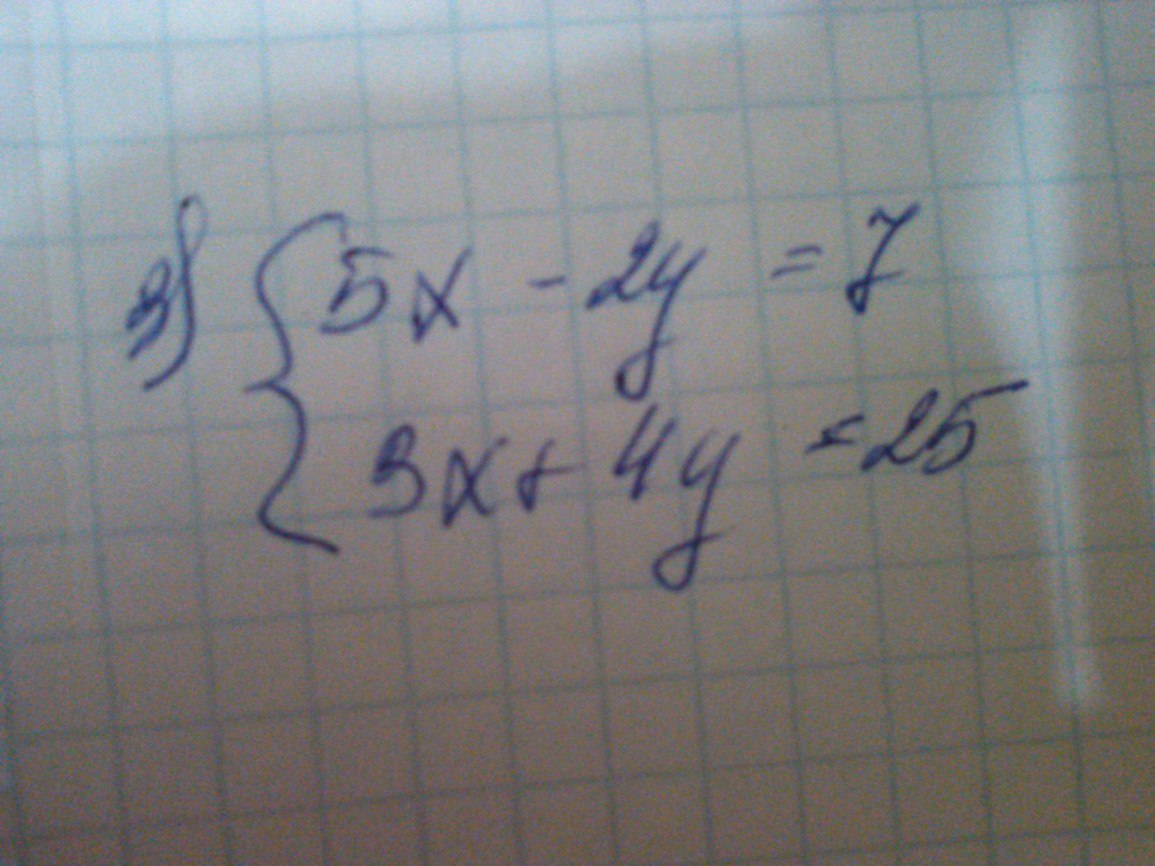 3) { 5x - 2y = 7
3x + 4y = 25